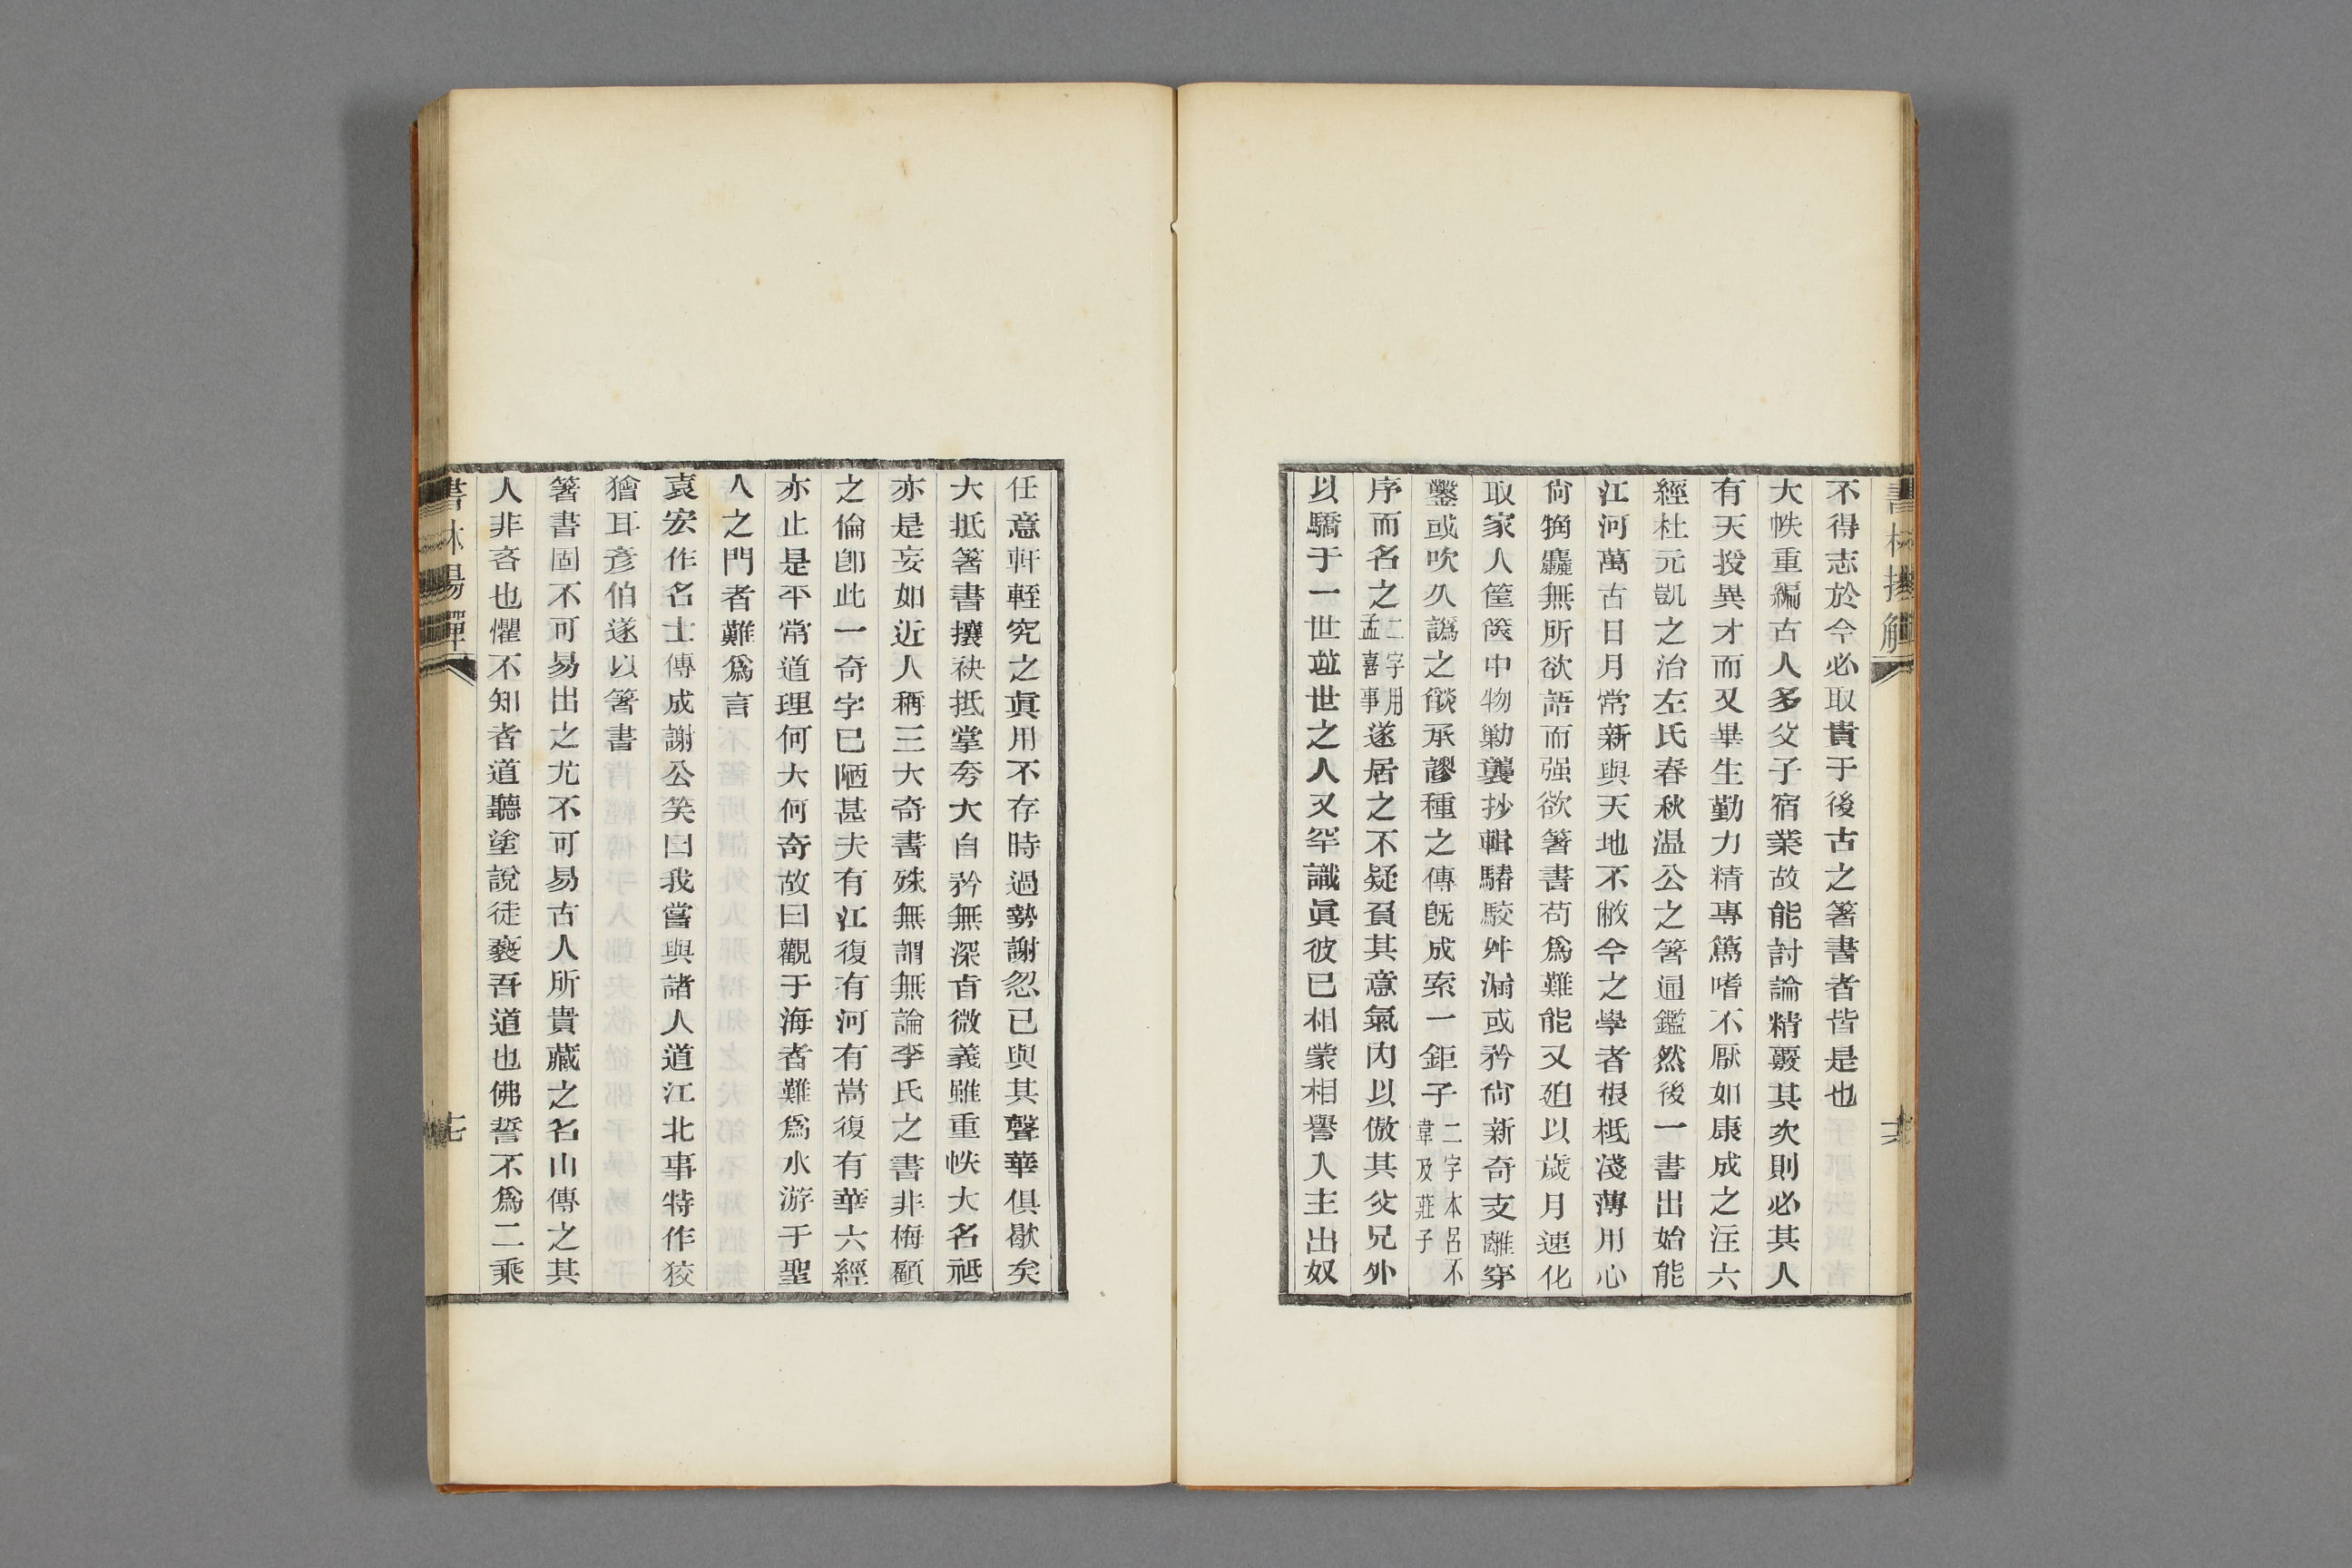 不得志於今必取貴于後古之箸書者皆是也
大帙重編古人多父子宿業故能討論精覈其次則必其人
有天授異才而又畢生勤力精專篤嗜不厭如康成之注六
經杜元凱之治左氏春秋温公之箸通鑑然後一書出始能
江河萬古日月常新與天地不敝今之學者根柢淺薄用心
尙觕麤無所欲語而强欲箸書苟爲難能又廹以歲月速化
取家人筐篋中物勦襲抄輯踳駮舛漏或矜尙新奇支離穿
鑿或吹久譌之燄承謬種之傳旣成索一鉅子二字本呂不韋及莊子
序而名之二字用孟喜事遂居之不疑負其意氣内以傲其父兄外
以驕于一世竝世之人又罕識眞彼已相蒙相譽入主出奴
任意軒輊究之眞用不存時過勢謝忽已與其聲華俱歇矣
大抵箸書攘袂抵掌夸大自矜無深㫖微義雖重帙大名祗
亦是妄如近人稱三大奇書殊無謂無論李氏之書非梅顧
之倫卽此一奇字已陋甚夫有江復有河有嵩復有華六經
亦止是平常道理何大何奇故曰觀于海者難爲水游于聖
人之門者難爲言
袁宏作名士傳成謝公笑曰我嘗與諸人道江北事特作狡
獪耳彥伯遂以箸書
箸書固不可易出之尤不可易古人所貴藏之名山傳之其
人非吝也懼不知者道聽塗說徒褻吾道也佛誓不爲二乘
書林揚觶
十七